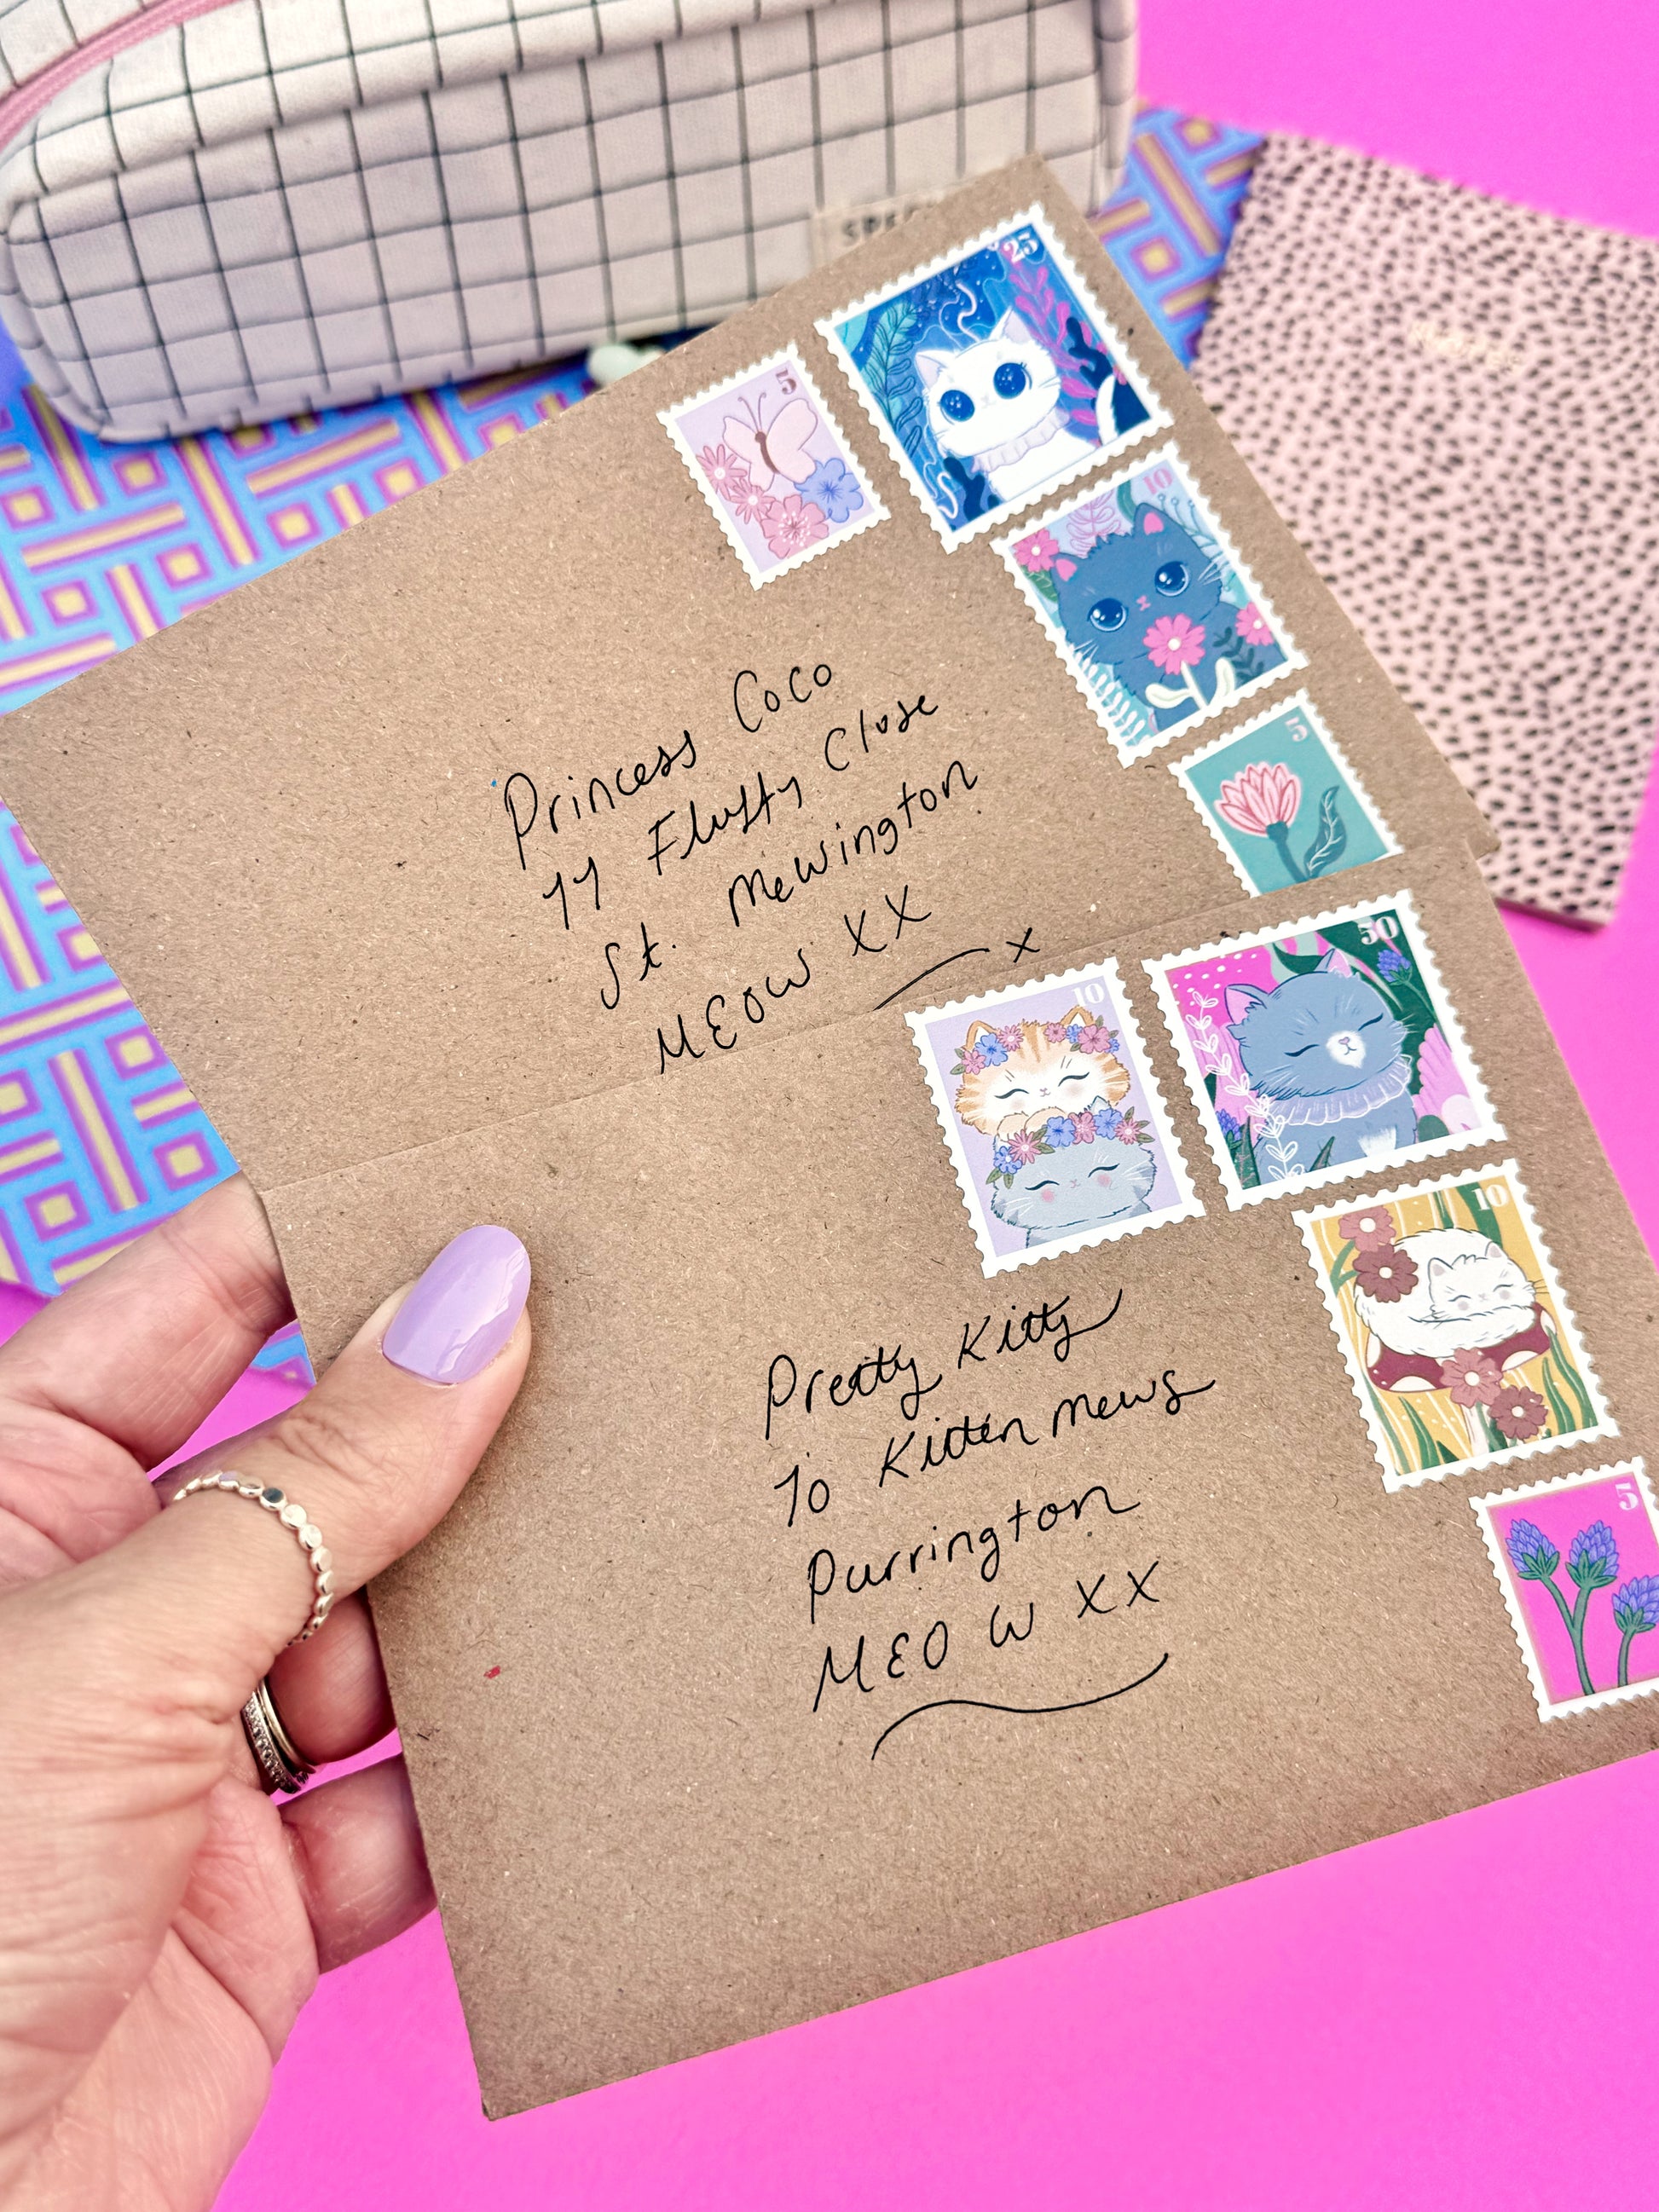 25
5
10
5
Princess Coco
11 Fluffy Close
St. Mewington
MEOW XX
x
50
10
10
5
Pretty Kitty
10 Kitten Mews
Purrington
MEOW XX